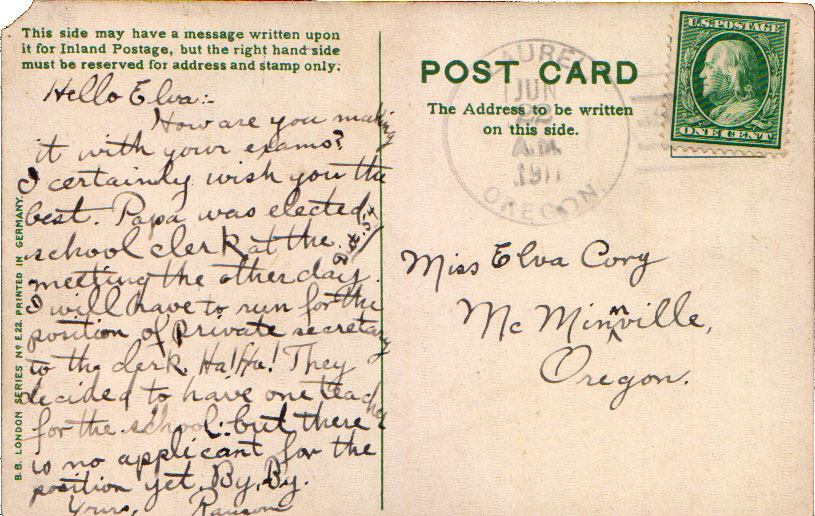 This side may have a message written upon
it for Inland Postage, but the right hand side
must be reserved for address and stamp only:
Hello Elva:-
How are you making
it with your exams?
I certainly wish you the
best. Papa was elected
school clerk at the
meeting the other day.
I will have to run for the
position of private secretary
to the clerk. Ha! Ha! They
decided to have one teacher
for the school: but there
is no applicant for the
position yet. By, By.
Yours, Ransom
B.B. LONDON SERIES No E.22. PRINTED IN GERMANY.
POST CARD
The Address to be written
on this side.
LAUREL
JUN
22
A.M.
1911
OREGON.
U.S. POSTAGE
ONE CENT
Miss Elva Cory
Mc Minnville,
Oregon.